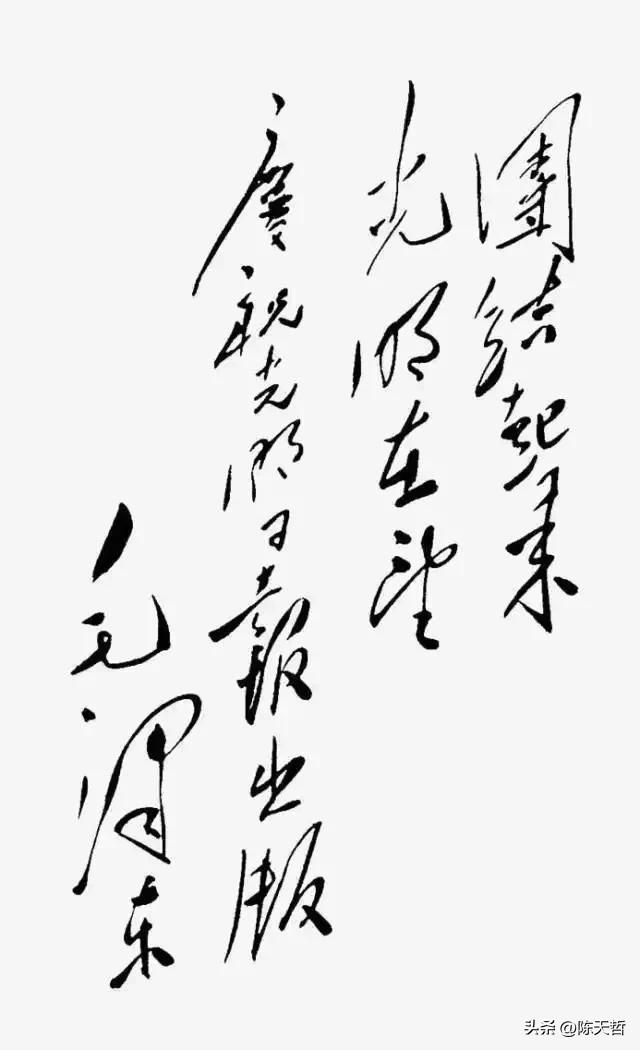 團結起來
光明在望
慶祝光明日報出版
毛澤東
头条 @陈天哲